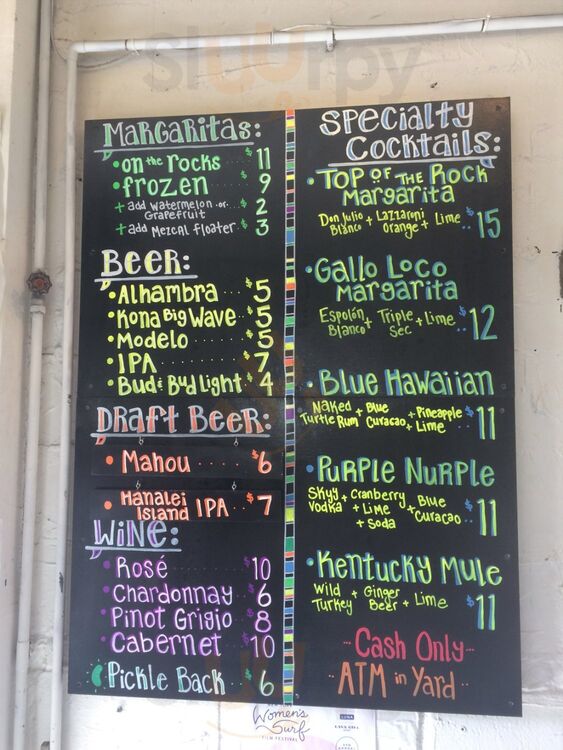 Sluurpy
MARGARITAS:
• on the rocks . . . $11
• frozen . . . . $9
+ add watermelon or Grapefruit . . . $2
+ add Mezcal floater . . $3
BEER:
• Alhambra . . . $5
• Kona Big Wave . . $5
• Modelo . . . . . $5
• IPA . . . . . . . $7
• Bud & Bud Light . $4
DRAFT BEER:
• Mahou . . . . . $6
• Hanalei Island IPA . . $7
WiNE:
• Rosé . . . . . $10
• Chardonnay . $6
• Pinot Grigio . $8
• Cabernet . . $10
Pickle Back . . $6
SPECIALTY
COCKTAILS:
• TOP OF THE ROCK
Margarita
Don Julio Blanco + Lazzaroni Orange + Lime . . $15
• Gallo Loco
Margarita
Espolón Blanco + Triple Sec + Lime . . $12
• Blue Hawaiian
Naked Turtle Rum + Blue Curacao + Pineapple + Lime . . $11
• PURPLE NURPLE
Skyy Vodka + Cranberry + Lime + Soda + Blue Curacao . . $11
• Kentucky Mule
Wild Turkey + Ginger Beer + Lime . . . $11
-- Cash Only --
-- ATM in Yard --
Women's
Surf
FILM FESTIVAL
LUNA